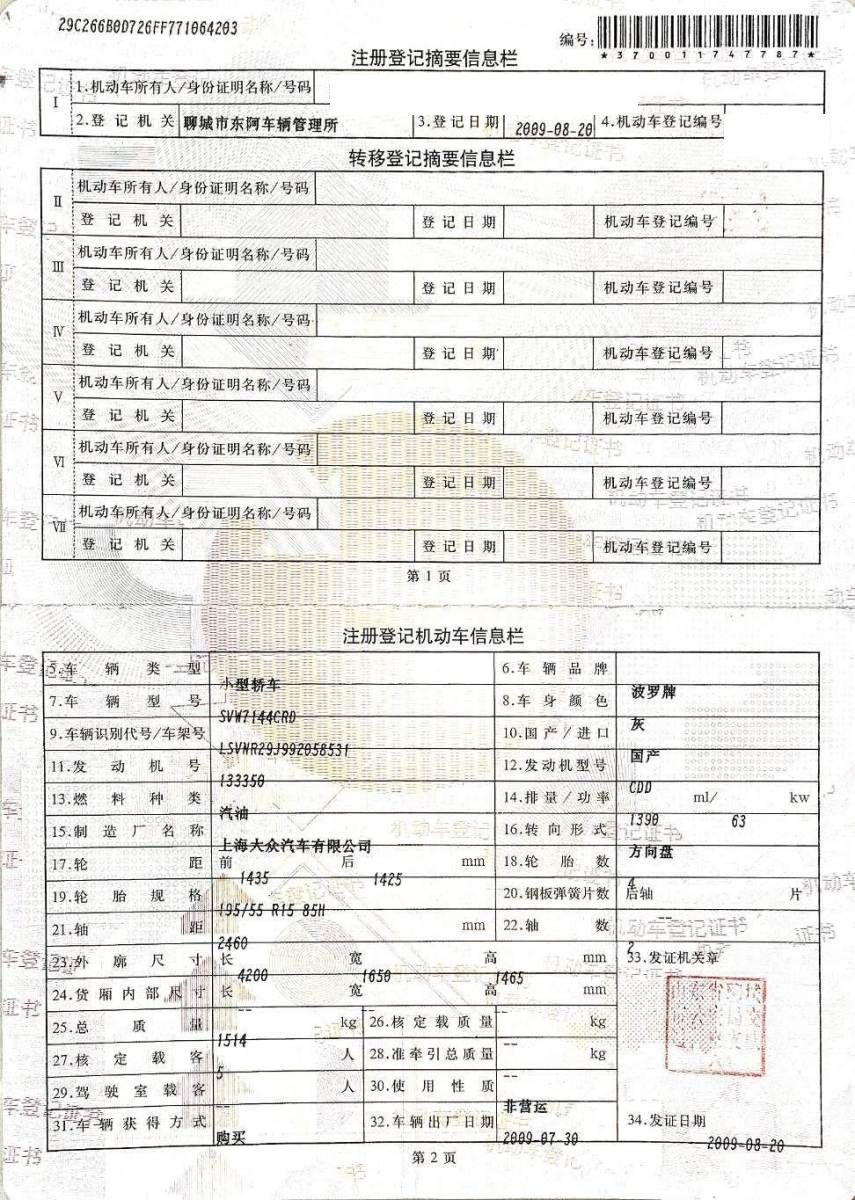 29C266B0D726FF771064203
编号:
*370011747787*
注册登记摘要信息栏
Ⅰ 1.机动车所有人/身份证明名称/号码
2.登记机关 聊城市东阿车辆管理所 3.登记日期 2009-08-20 4.机动车登记编号
转移登记摘要信息栏
Ⅱ 机动车所有人/身份证明名称/号码
登记机关 登记日期 机动车登记编号
Ⅲ 机动车所有人/身份证明名称/号码
登记机关 登记日期 机动车登记编号
Ⅳ 机动车所有人/身份证明名称/号码
登记机关 登记日期 机动车登记编号
Ⅴ 机动车所有人/身份证明名称/号码
登记机关 登记日期 机动车登记编号
Ⅵ 机动车所有人/身份证明名称/号码
登记机关 登记日期 机动车登记编号
Ⅶ 机动车所有人/身份证明名称/号码
登记机关 登记日期 机动车登记编号
第1页
注册登记机动车信息栏
5.车辆类型 小型轿车 6.车辆品牌 波罗牌
7.车辆型号 SVW7144CRD 8.车身颜色 灰
9.车辆识别代号/车架号 LSVNR29J992058531 10.国产/进口 国产
11.发动机号 133350 12.发动机型号 CDD
13.燃料种类 汽油 14.排量/功率 1390 ml/ 63 kw
15.制造厂名称 上海大众汽车有限公司 16.转向形式 方向盘
17.轮距 前 1435 后 1425 mm 18.轮胎数 4
19.轮胎规格 195/55 R15 85H 20.钢板弹簧片数 后轴 -- 片
21.轴距 2460 mm 22.轴数 2
23.外廓尺寸 长 4200 宽 1650 高 1465 mm 33.发证机关章
24.货厢内部尺寸 长 -- 宽 -- 高 -- mm
25.总质量 1514 kg 26.核定载质量 -- kg
27.核定载客 5 人 28.准牵引总质量 -- kg
29.驾驶室载客 -- 人 30.使用性质 非营运
31.车辆获得方式 购买 32.车辆出厂日期 2009-07-30 34.发证日期 2009-08-20
第2页